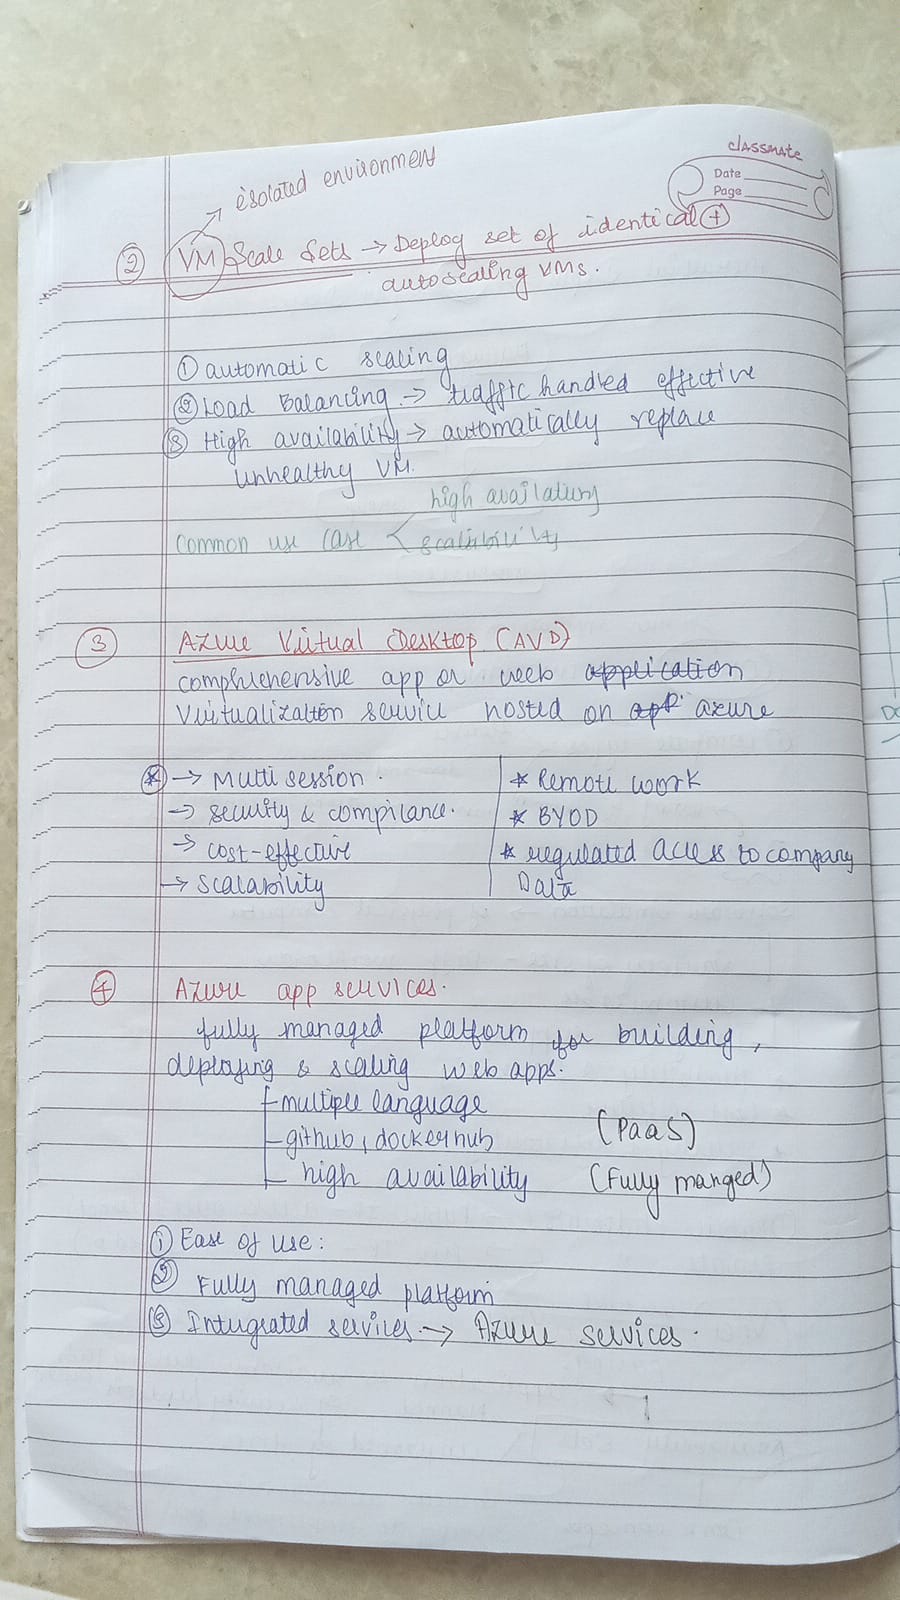 classmate
Date
Page
isolated environment
② VM Scale Sets → Deploy set of identical +
autoscaling VMs.
① automatic scaling
② Load Balancing → traffic handled effective
③ High availability → automatically replace
unhealthy VM.
high availability
common use case < scalability
③ Azure Virtual Desktop (AVD)
comprehensive app or web application
Virtualization service hosted on app azure
* → Multi session.
→ security & complicance.
→ cost-effective
→ Scalability
* Remote work
* BYOD
* regulated access to company
Data
④ Azure app services.
fully managed platform for building,
deploying & scaling web apps.
multiple language
github, dockerhub (PaaS)
high availability (Fully manged)
① Ease of use:
② Fully managed platform
③ Intugrated services → Azure services.